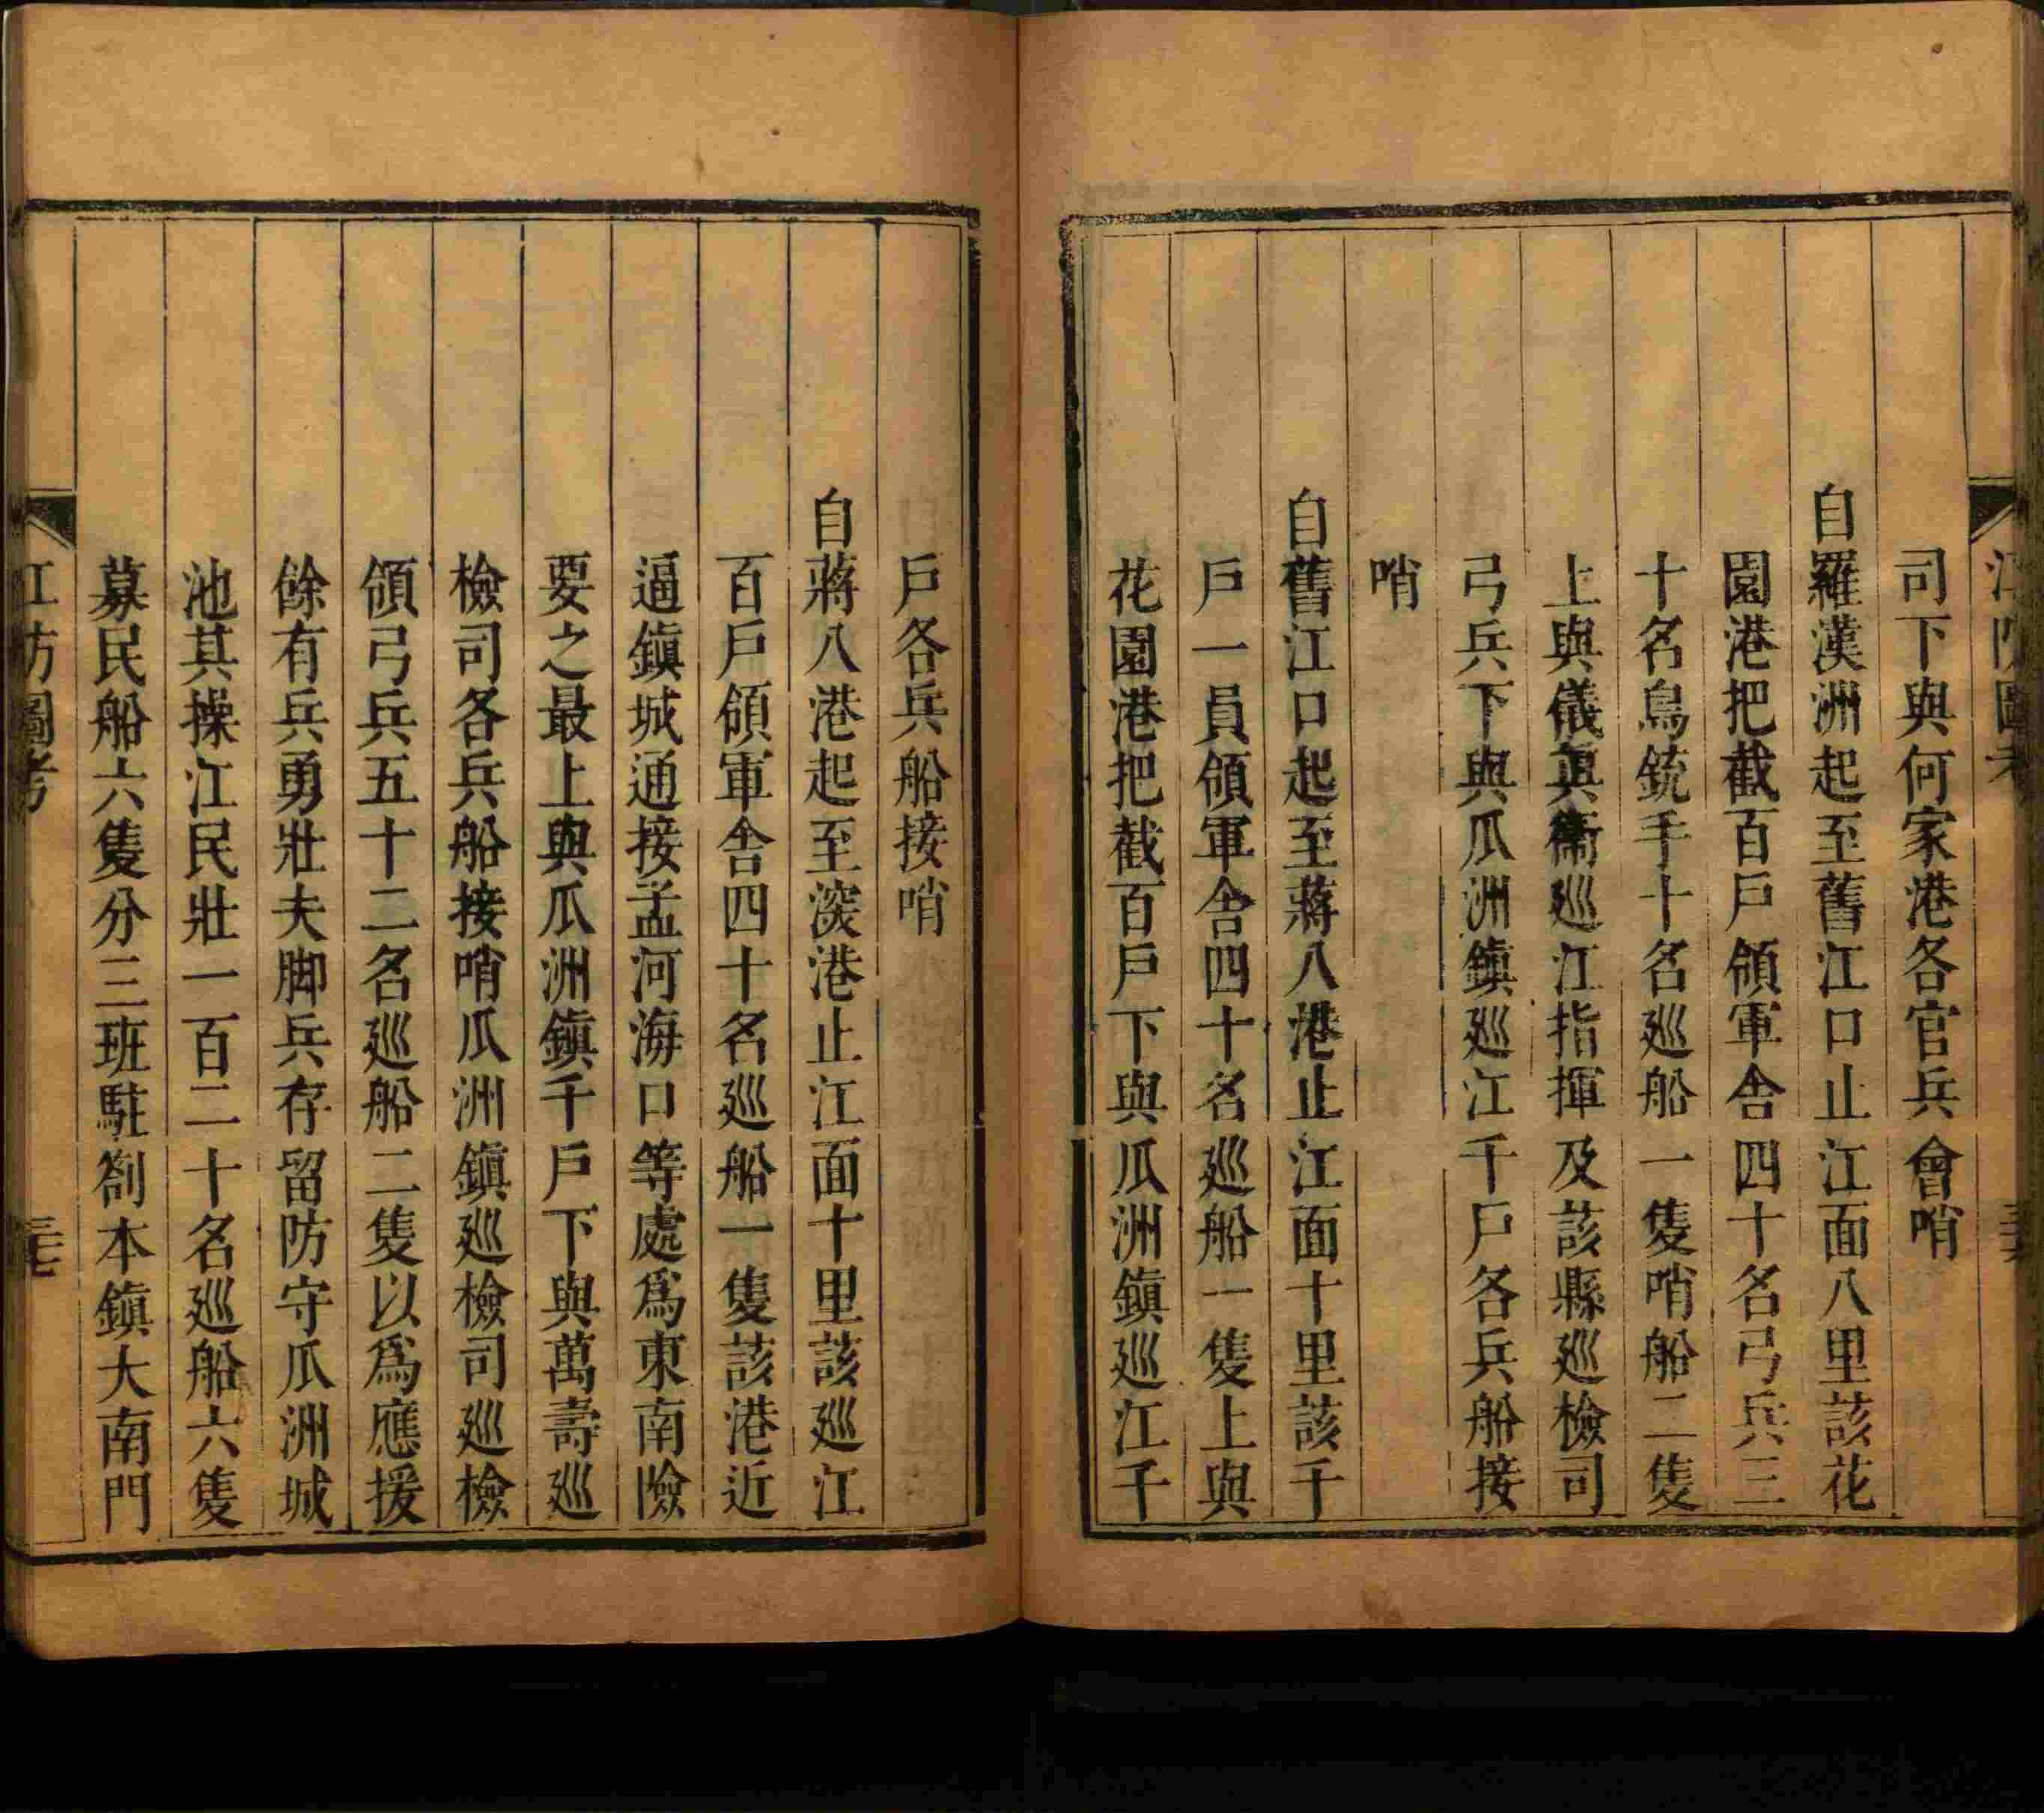 江防圖考
司下與何家港各官兵會哨
自羅漢洲起至舊江口止江面八里該花
園港把截百戶領軍舎四十名弓兵三
十名鳥銃手十名廵船一隻哨船二隻
上與儀眞衞廵江指揮及該縣廵檢司
弓兵下與瓜洲鎭廵江千戶各兵船接
哨
自舊江口起至蔣八港止江面十里該千
戶一員領軍舎四十名廵船一隻上與
花園港把截百戶下與瓜洲鎭廵江千
戶各兵船接哨
自蔣八港起至深港止江面十里該廵江
百戶領軍舎四十名廵船一隻該港近
逼鎭城通接孟河海口等處爲東南險
要之最上與瓜洲鎭千戶下與萬壽廵
檢司各兵船接哨瓜洲鎭廵檢司廵檢
領弓兵五十二名廵船二隻以爲應援
餘有兵勇壯夫脚兵存留防守瓜洲城
池其操江民壯一百二十名廵船六隻
募民船六隻分三班駐劄本鎭大南門
江防圖考
三七